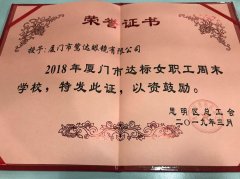 荣誉证书
授予:厦门市鹭达眼镜有限公司
2018年厦门市达标女职工周末
学校,特发此证,以资鼓励。
思明区总工会
二〇一九年三月